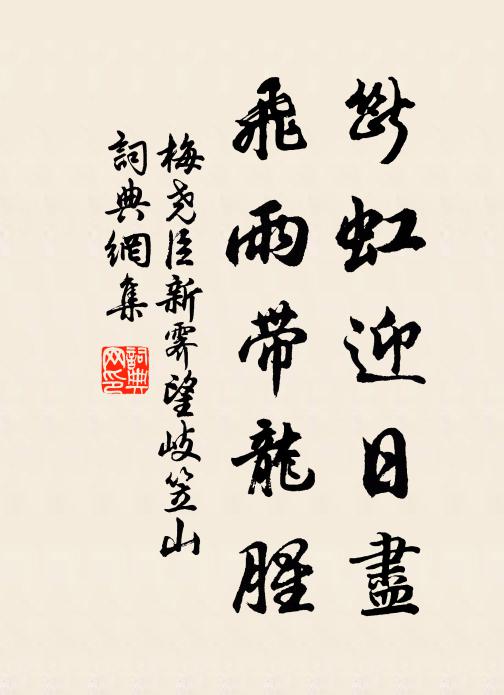 斷虹迎日盡
飛雨帶龍腥
梅堯臣新霽望岐笠山
詞典網集
詞典網印